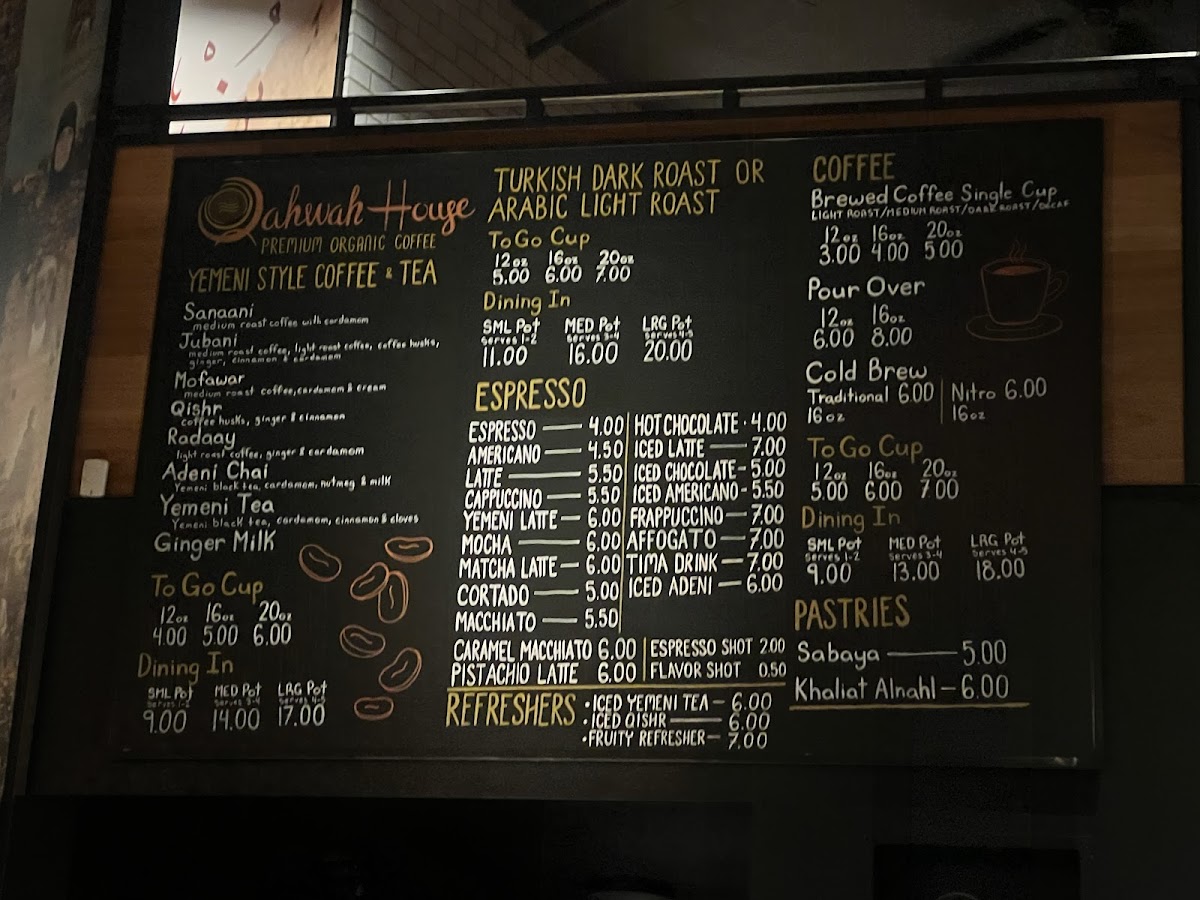 Qahwah House
PREMIUM ORGANIC COFFEE
YEMENI STYLE COFFEE & TEA
Sanaani
medium roast coffee with cardamom
Jubani
medium roast coffee, light roast coffee, coffee husks,
ginger, cinnamon & cardamom
Mofawar
medium roast coffee, cardamom & cream
Qishr
coffee husks, ginger & cinnamon
Radaay
light roast coffee, ginger & cardamom
Adeni Chai
Yemeni black tea, cardamom, nutmeg & milk
Yemeni Tea
Yemeni black tea, cardamom, cinnamon & cloves
Ginger Milk
To Go Cup
12oz 16oz 20oz
4.00 5.00 6.00
Dining In
SML Pot MED Pot LRG Pot
Serves 1-2 Serves 3-4 Serves 4-5
9.00 14.00 17.00
TURKISH DARK ROAST OR
ARABIC LIGHT ROAST
To Go Cup
12oz 16oz 20oz
5.00 6.00 7.00
Dining In
SML Pot MED Pot LRG Pot
Serves 1-2 Serves 3-4 Serves 4-5
11.00 16.00 20.00
ESPRESSO
ESPRESSO — 4.00
AMERICANO — 4.50
LATTE — 5.50
CAPPUCCINO — 5.50
YEMENI LATTE — 6.00
MOCHA — 6.00
MATCHA LATTE — 6.00
CORTADO — 5.00
MACCHIATO — 5.50
HOT CHOCOLATE · 4.00
ICED LATTE — 7.00
ICED CHOCOLATE - 5.00
ICED AMERICANO - 5.50
FRAPPUCCINO — 7.00
AFFOGATO — 7.00
TIMA DRINK — 7.00
ICED ADENI — 6.00
CARAMEL MACCHIATO 6.00
PISTACHIO LATTE 6.00
ESPRESSO SHOT 2.00
FLAVOR SHOT 0.50
REFRESHERS
• ICED YEMENI TEA — 6.00
• ICED QISHR — 6.00
• FRUITY REFRESHER — 7.00
COFFEE
Brewed Coffee Single Cup
LIGHT ROAST/MEDIUM ROAST/DARK ROAST/DECAF
12oz 16oz 20oz
3.00 4.00 5.00
Pour Over
12oz 16oz
6.00 8.00
Cold Brew
Traditional 6.00
16oz
Nitro 6.00
16oz
To Go Cup
12oz 16oz 20oz
5.00 6.00 7.00
Dining In
SML Pot MED Pot LRG Pot
Serves 1-2 Serves 3-4 Serves 4-5
9.00 13.00 18.00
PASTRIES
Sabaya — 5.00
Khaliat Alnahl — 6.00